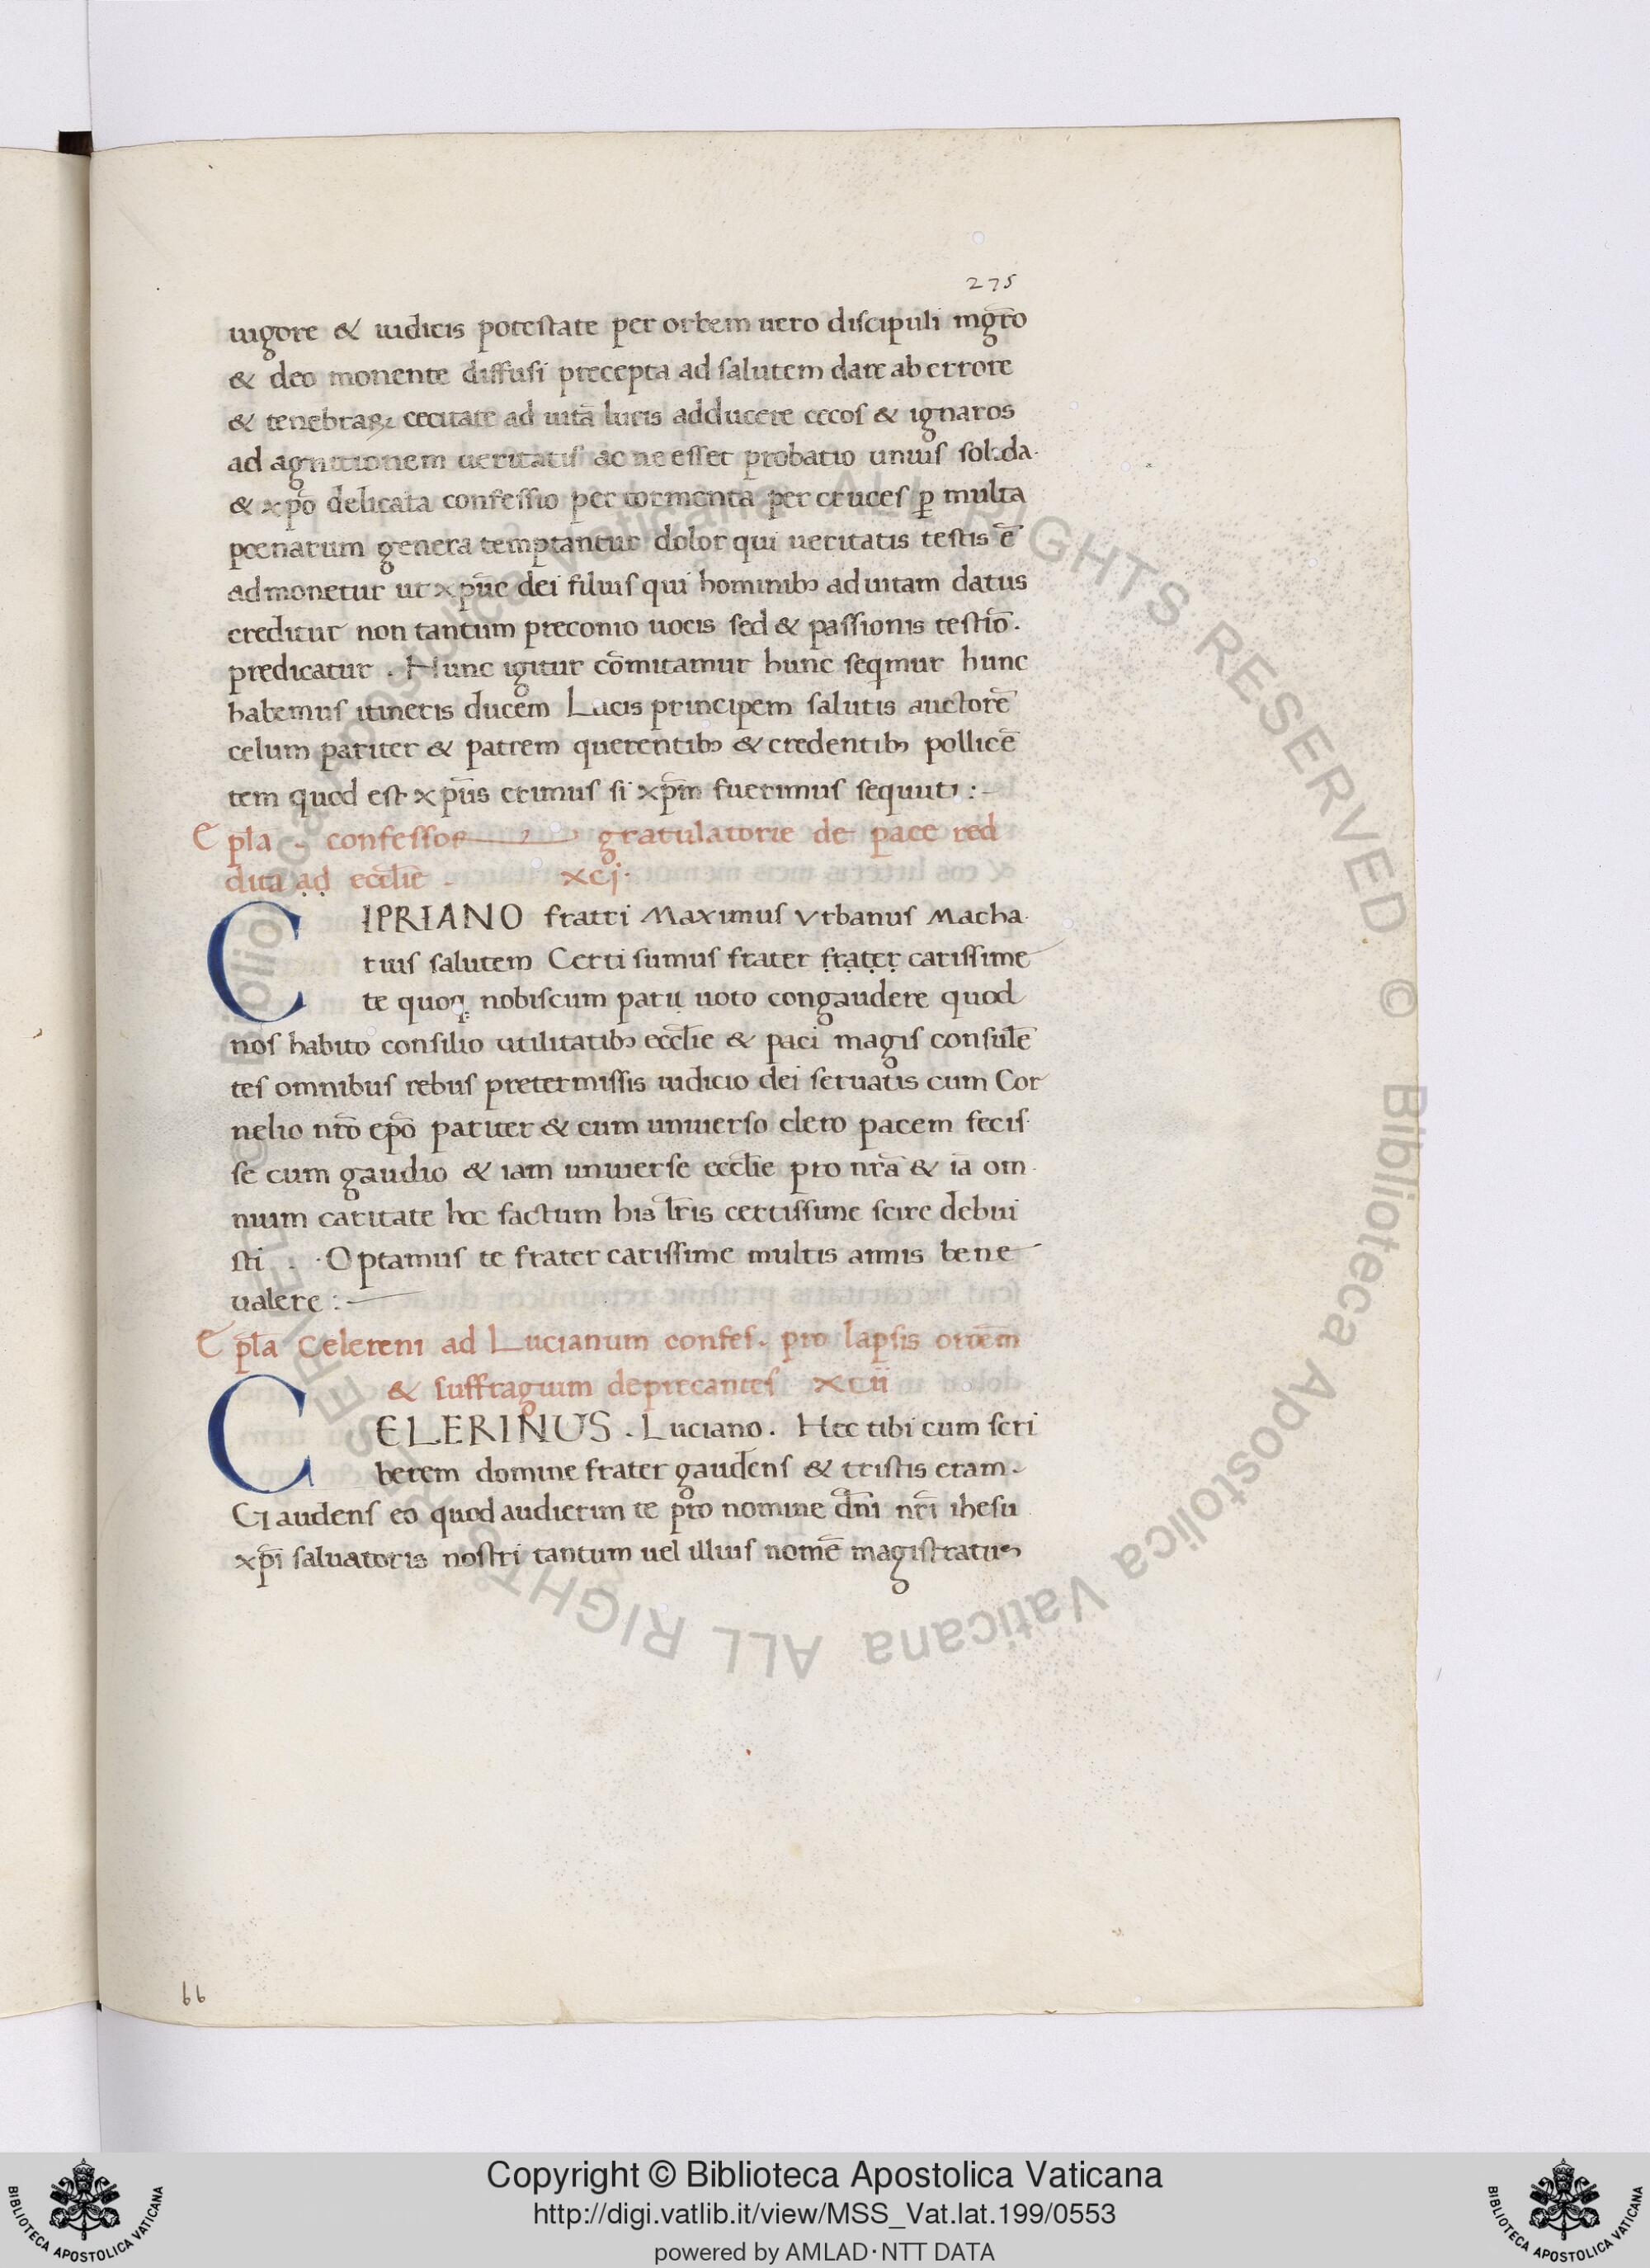 275
uigore & iudicis potestate per orbem uero discipuli mgr̄o
& deo monente diffusi precepta ad salutem dare ab errore
& tenebraꝝ cecitate ad uitā lucis adducere cecos & ignaros
ad agnitionem ueritatis ac ne esset probatio unius solida
& xp̄o delicata confessio per tormenta per cruces ꝑ multa
poenarum genera temptantur dolor qui ueritatis testis ē
admonetur ut xpūc dei filius qui hominibꝫ ad uitam datus
creditur non tantum preconio uocis sed & passionis testīo.
predicatur . Hunc igitur cōmitamur hunc seqmur hunc
habemus itineris ducem Lucis principem salutis auctorē
celum pariter & patrem querentibꝫ & credentibꝫ pollicē
tem quod est xpūs erimus si xp̄m fuerimus sequuti :-
Epl̄a . confessoꝝ gratulatorie de pace red
dita ad eccl̄ie . xcj.
CIPRIANO fratri Maximus Vrbanus Macha
rius salutem Certi sumus frater frater carissime
te quoqꝫ nobiscum parij uoto congaudere quod
nos habito consilio utilitatibꝫ eccl̄ie & paci magis consulē
tes omnibus rebus pretermissis iudicio dei seruatis cum Cor
nelio nr̄o ep̄o pariter & cum uniuerso clero pacem fecis
se cum gaudio & iam uniuerse eccl̄ie pro nr̄a & iā om
nium caritate hoc factum his lr̄is certissime scire debui
sti . . Optamus te frater carissime multis annis bene
ualere :-
Epl̄a Celereni ad Lucianum confes. pro lapsis orōem
& suffragium deprecantes xcii
CELERINUS . Luciano . Hec tibi cum scri
berem domine frater gaudens & tristis eram.
Gaudens eo quod audierim te pro nomine dn̄i nr̄i ihesu
xp̄i saluatoris nostri tantum uel illius nomē magistratus
66
© Biblioteca Apostolica Vaticana ALL RIGHTS RESERVED
© Biblioteca Apostolica Vaticana ALL RIGHTS RESERVED
Copyright © Biblioteca Apostolica Vaticana
http://digi.vatlib.it/view/MSS_Vat.lat.199/0553
powered by AMLAD·NTT DATA
BIBLIOTECA APOSTOLICA VATICANA
BIBLIOTECA APOSTOLICA VATICANA